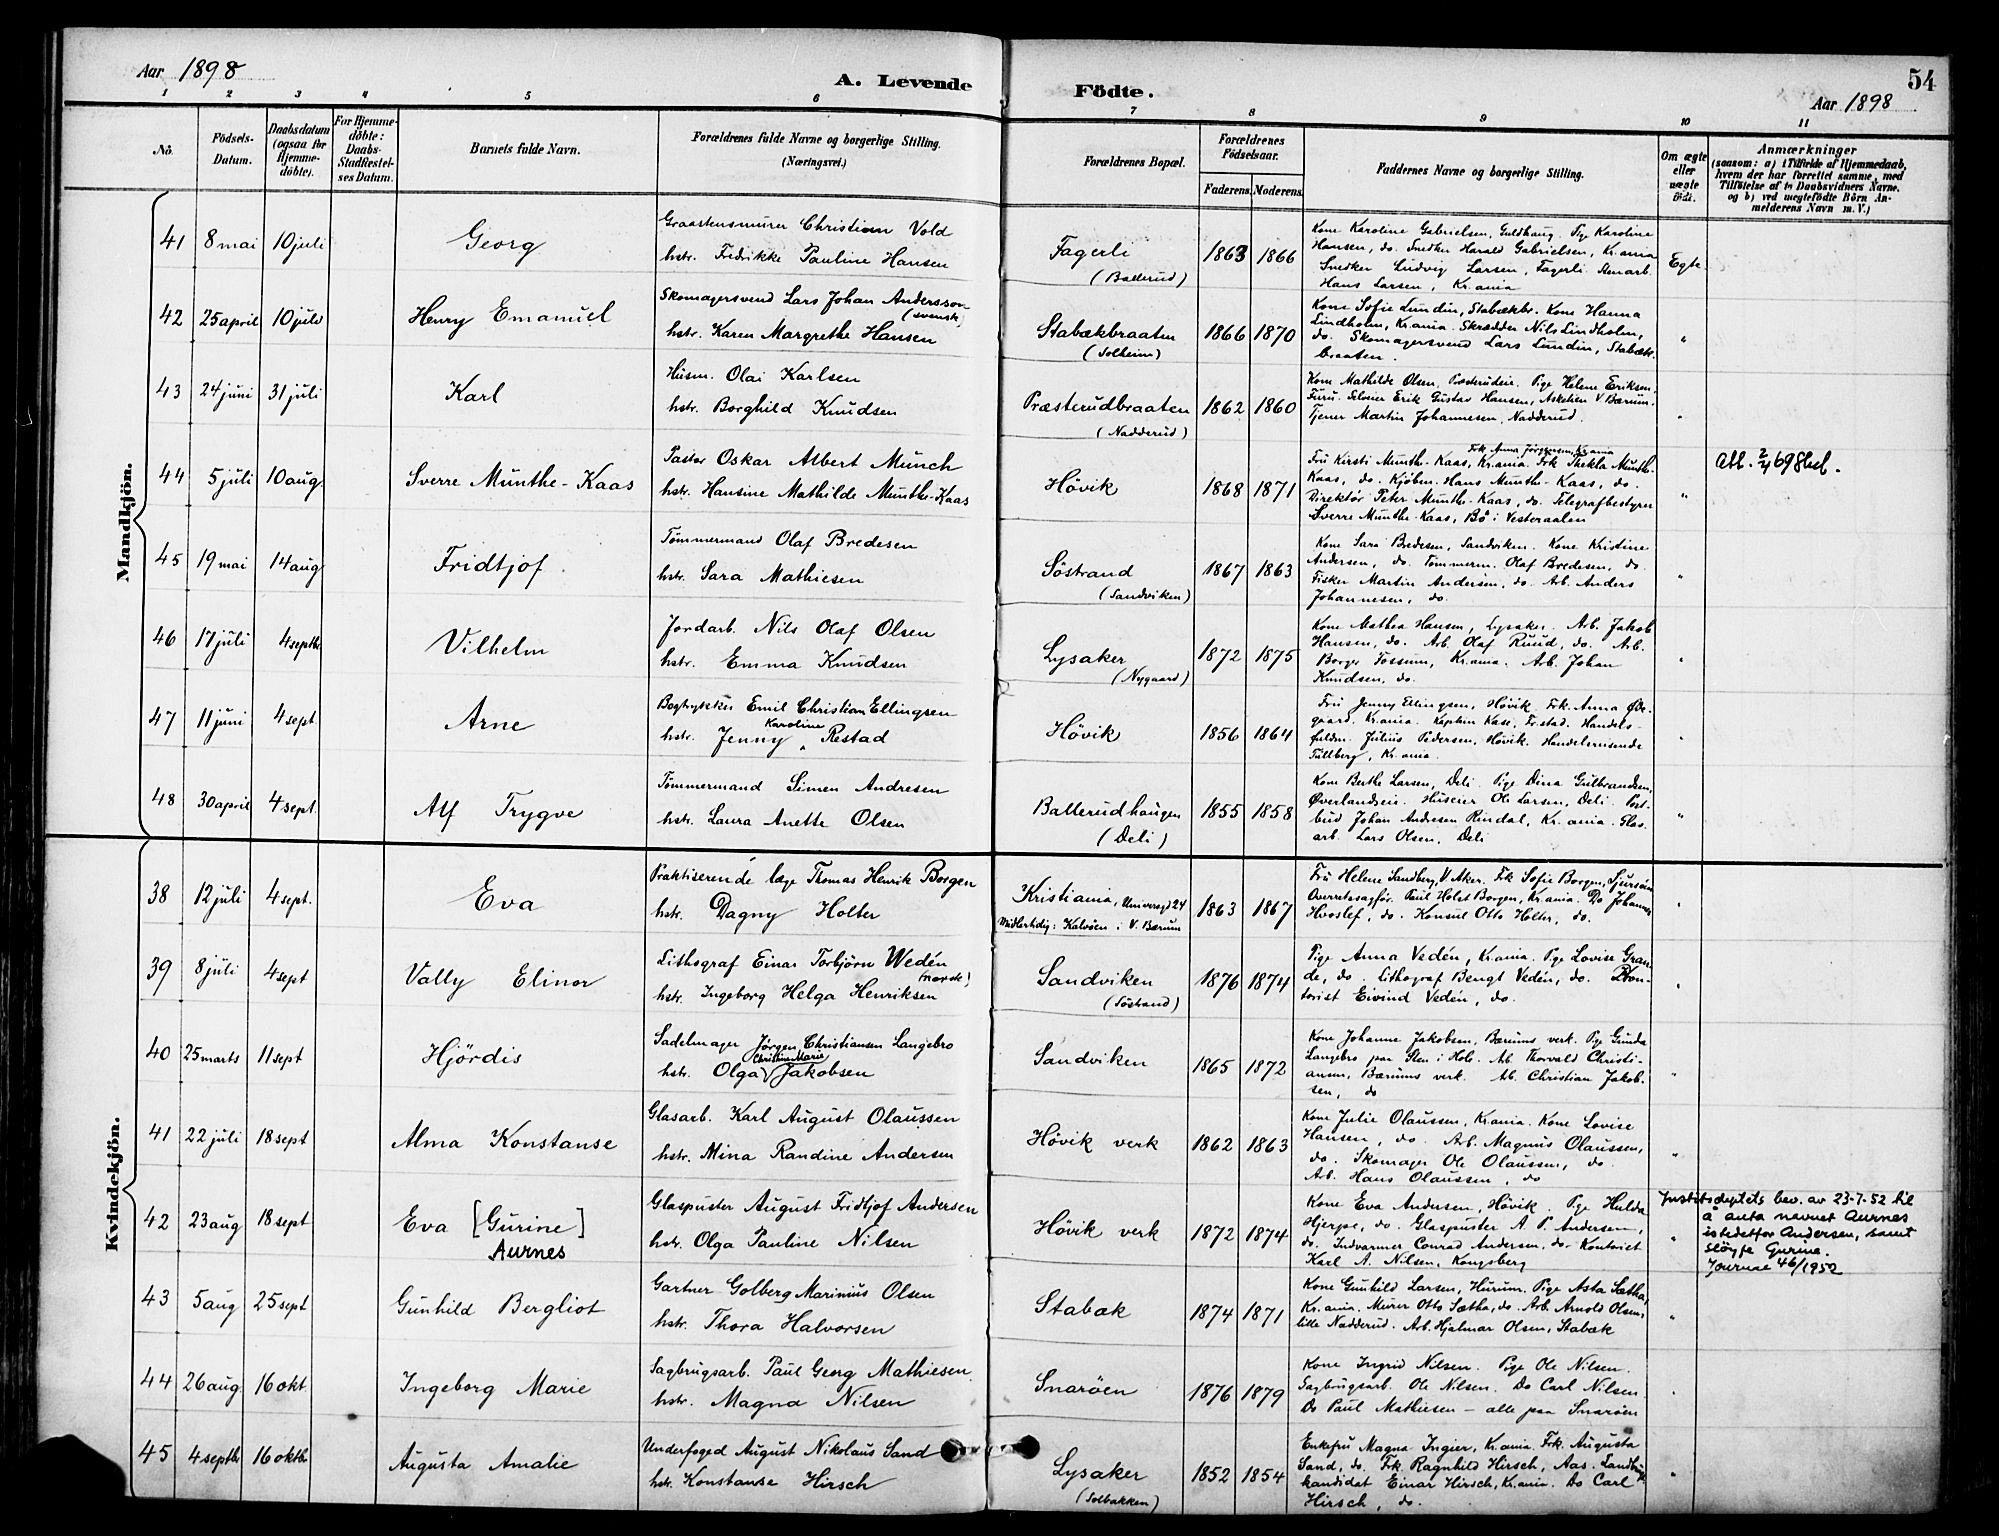 Aar 1898
A. Levende Födte.
54
Aar 1898
1 2 3 4 5 6 7 8 9 10 11
No.
Födsels-Datum.
Daabsdatum (ogsaa for Hjemme-döbte).
For Hjemme-döbte: Daabs-Stadfæstel-ses Datum.
Barnets fulde Navn.
Forældrenes fulde Navne og borgerlige Stilling. (Næringsvei.)
Forældrenes Bopæl.
Forældrenes Födselsaar.
Faderens. Moderens.
Faddernes Navne og borgerlige Stilling.
Om ægte eller uægte födt.
Anmærkninger
(saasom: a) i Tilfælde af Hjemmedaab,
hvem der har forrettet samme, med
Tilföielse af to Daabsvidners Navne.
og b) ved uægtefödte Börn An-
melderens Navn m. V.)
Mandkjön.
41 8 mai 10 juli Georg
Graastensmurer Christian Vold
hstr. Fredrikke Pauline Hansen
Fagerli
(Ballerud)
1863 1866
Kone Karoline Gabrielsen, Guldhaug. Pige Karoline
Hansen, do. Snedker Harald Gabrielsen, Kr.ania
Snedker Ludvig Larsen, Fagerli. Stenarb.
Hans Larsen, Kr.ania
Egte
42 25 april 10 juli Henry Emanuel
Skomagersvend Lars Johan Andersson
(svensk)
hstr. Karen Margrethe Hansen
Stabækbraaten
(Solheim)
1866 1870
Kone Sofie Lundin, Stabækbr. Kone Hanna
Lindholm, Kr.ania. Skrædder Nils Lindholm,
do. Skomagersvend Lars Lundin, Stabæk-
braaten.
"
43 24 juni 31 juli Karl
Husm. Olai Karlsen
hstr. Borghild Knudsen
Præsterudbraaten
(Nadderud)
1862 1860
Kone Mathilde Olsen, Præsterudeie. Pige Helene Eriksen,
Furu. Erik Gustav Hansen, V Bærum.
Tjener Martin Johannesen, Nadderud.
"
44 5 juli 10 aug Sverre Munthe-Kaas
Pastor Oskar Albert Munch
hstr. Hansine Mathilde Munthe-Kaas
Hövik
1868 1871
Frk Anna Jørgensen, Kr.ania
Fru Kirsti Munthe-Kaas, Kr.ania. Frk Thekla Munthe-
Kaas, do. Kjøbm. Hans Munthe-Kaas, do.
Direktör Peter Munthe-Kaas, do. Telegrafbestyrer
Sverre Munthe-Kaas, Bö i Vesteraalen
"
45 19 mai 14 aug Fridtjof
Tömmermand Olaf Bredesen
hstr. Sara Mathiesen
Söstrand
(Sandviken)
1867 1863
Kone Sara Bredesen, Sandviken. Kone Kristine
Andersen, do. Tömmerm. Olaf Bredesen, do.
Fisker Martin Andersen, do. Arb. Anders
Johannesen, do.
"
46 17 juli 4 septb Vilhelm
Jordarb. Nils Olaf Olsen
hstr. Emma Knudsen
Lysaker
(Nygaard)
1872 1875
Kone Mathea Hansen, Lysaker. Arb. Jakob
Hansen, do. Arb Olaf Ruud, do. Arb.
Borger Fossum, Kr.ania. Arb. Johan
Knudsen, do.
"
47 11 juni 4 sept Arne
Bogtrykker Emil Christian Ellingsen
Karoline
hstr. Jenny Restad
Hövik
1856 1864
Fru Jenny Ellingsen, Hövik. Frk. Anna Öde-
gaard, Kr.ania. Kaptein Kase, Fr.stad. Handels-
fuldm. Julius Pedersen, Hövik. Handelsreisende
Tullberg, Kr.ania.
"
48 30 april 4 sept. Alf Trygve
Tömmermand Simen Andresen
hstr. Laura Anette Olsen
Ballerudhaugen
(Deli)
1855 1858
Kone Berthe Larsen, Deli. Pige Dina Gulbrandsen,
Øverlandseie. Huseier Ole Larsen, Deli. Post-
bud Johan Andresen Rindal, Kr.ania. Glas-
arb. Lars Olsen, Deli
"
Kvindekjön.
38 12 juli 4 sept. Eva
Praktiserende læge Thomas Henrik Borgen
hstr. Dagny Holter
Kristiania, Universgd 24
Midlertidig: Kalvöen i V. Bærum
1863 1867
Fru Helene Sandberg, V. Aker. Frk Sofie Borgen,
Overretssagför. Paul Holst Borgen, Kr.ania. Do Johannes
Hvoslef, do. Konsul Otto Holter, do.
"
39 8 juli 4 sept Vally Elinor
Lithograf Einar Torbjörn Wedén
(norsk)
hstr. Ingeborg Helga Henriksen
Sandviken
(Söstrand)
1876 1874
Pige Anna Vedén, Kr.ania. Pige Lovise Gran-
de, do. Lithograf Bengt Vedén, do. Kon-
torist Eivind Vedén, do.
"
40 25 marts 11 sept Hjördis
Sadelmager Jörgen Christiansen Langebro
Christine Marie
hstr. Olga Jakobsen
Sandviken
1865 1872
Kone Johanne Jakobsen, Bærums verk. Pige Gunda
Langebro paa Sten i Hole. Arb. Thorvald Christi-
ansen, Bærums verk. Arb. Christian Jakob-
sen, do
"
41 22 juli 18 sept Alma Konstanse
Glasarb. Karl August Olaussen
hstr. Mina Randine Andersen
Hövik verk
1862 1863
Kone Julie Olaussen, Kr.ania. Kone Lovise
Hansen, do. Arb. Magnus Olaussen,
do. Skomager Ole Olaussen, do.
Arb. Hans Olaussen, do
"
42 23 aug 18 sept Eva [Gurine]
Aurnes
Glaspuster August Fridtjof Andersen
hstr. Olga Pauline Nilsen
Hövik verk
1872 1874
Kone Eva Andersen, Hövik. Pige Hulda
Hjerpe, do. Glaspuster A. P. Andersen,
do. Indvarmer Conrad Andersen, do. Kontorist
Karl A. Nilsen, Kongsberg
"
Justitsdeptets bev. av 23-7-52 til
å anta navnet Aurnes
istedetfor Andersen, samt
sløyfe Gurine.
Journal 46/1952
43 5 aug 25 sept Gunhild Bergliot
Gartner Golberg Marinius Olsen
hstr. Thora Halvorsen
Stabæk
1874 1871
Kone Gunhild Larsen, Hurum. Pige Asta Sætha,
Kr.ania. Murer Otto Sætha, do. Arb. Arnold Olsen,
lille Nadderud. Arb. Hjalmar Olsen, Stabæk
"
44 26 aug. 16 okt. Ingeborg Marie
Sagbrugsarb. Paul Georg Mathiesen
hstr. Magna Nilsen
Snaröen
1876 1879
Kone Ingrid Nilsen. Pige Ole Nilsen.
Sagbrugsarb. Ole Nilsen. Do Carl Nilsen
Do Paul Mathiesen – alle paa Snaröen
"
45 4 septb 16 oktb. Augusta Amalie
Underfoged August Nikolaus Sand
hstr. Konstanse Hirsch
Lysaker
(Solbakken)
1852 1854
Enkefru Magna Ingier, Kr.ania. Frk. Augusta
Sand, do. Frk. Ragnhild Hirsch, Aas. Landbr.
kandidat Einar Hirsch, Kr.ania. Do Carl
Hirsch, do.
"